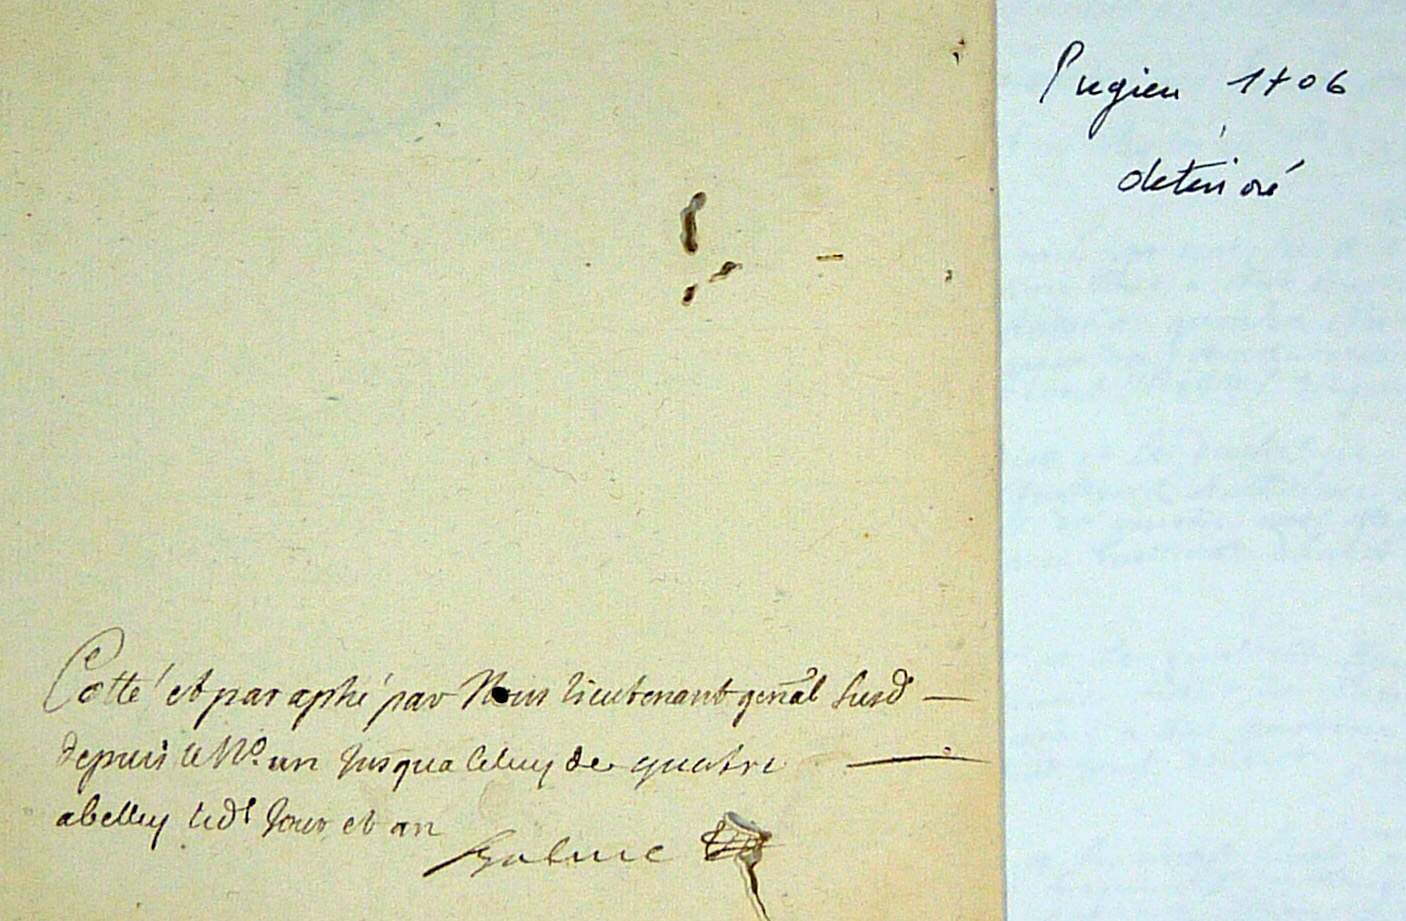 Pugieu 1706
detérioré
Cotté et paraphé par Nous lieutenant genãl susd
depuis le No. un Jusqua Celuy de quatre
abelley led.t Jour et an